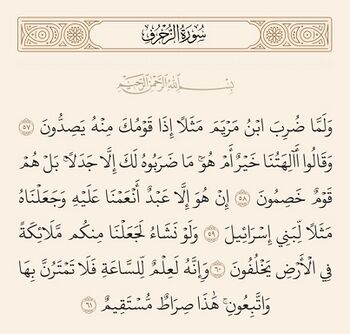 سُورَةُ الزُّخْرُفِ
بِسْمِ اللَّهِ الرَّحْمَٰنِ الرَّحِيمِ
وَلَمَّا ضُرِبَ ابْنُ مَرْيَمَ مَثَلًا إِذَا قَوْمُكَ مِنْهُ يَصِدُّونَ ٥٧
وَقَالُوا أَآلِهَتُنَا خَيْرٌ أَمْ هُوَ ۚ مَا ضَرَبُوهُ لَكَ إِلَّا جَدَلًا ۚ بَلْ هُمْ
قَوْمٌ خَصِمُونَ ٥٨ إِنْ هُوَ إِلَّا عَبْدٌ أَنْعَمْنَا عَلَيْهِ وَجَعَلْنَاهُ
مَثَلًا لِّبَنِي إِسْرَائِيلَ ٥٩ وَلَوْ نَشَاءُ لَجَعَلْنَا مِنكُم مَّلَائِكَةً
فِي الْأَرْضِ يَخْلُفُونَ ٦٠ وَإِنَّهُ لَعِلْمٌ لِّلسَّاعَةِ فَلَا تَمْتَرُنَّ بِهَا
وَاتَّبِعُونِ ۚ هَٰذَا صِرَاطٌ مُّسْتَقِيمٌ ٦١